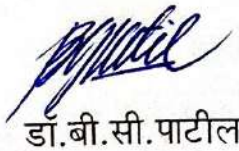 डॉ.बी.सी.पाटील